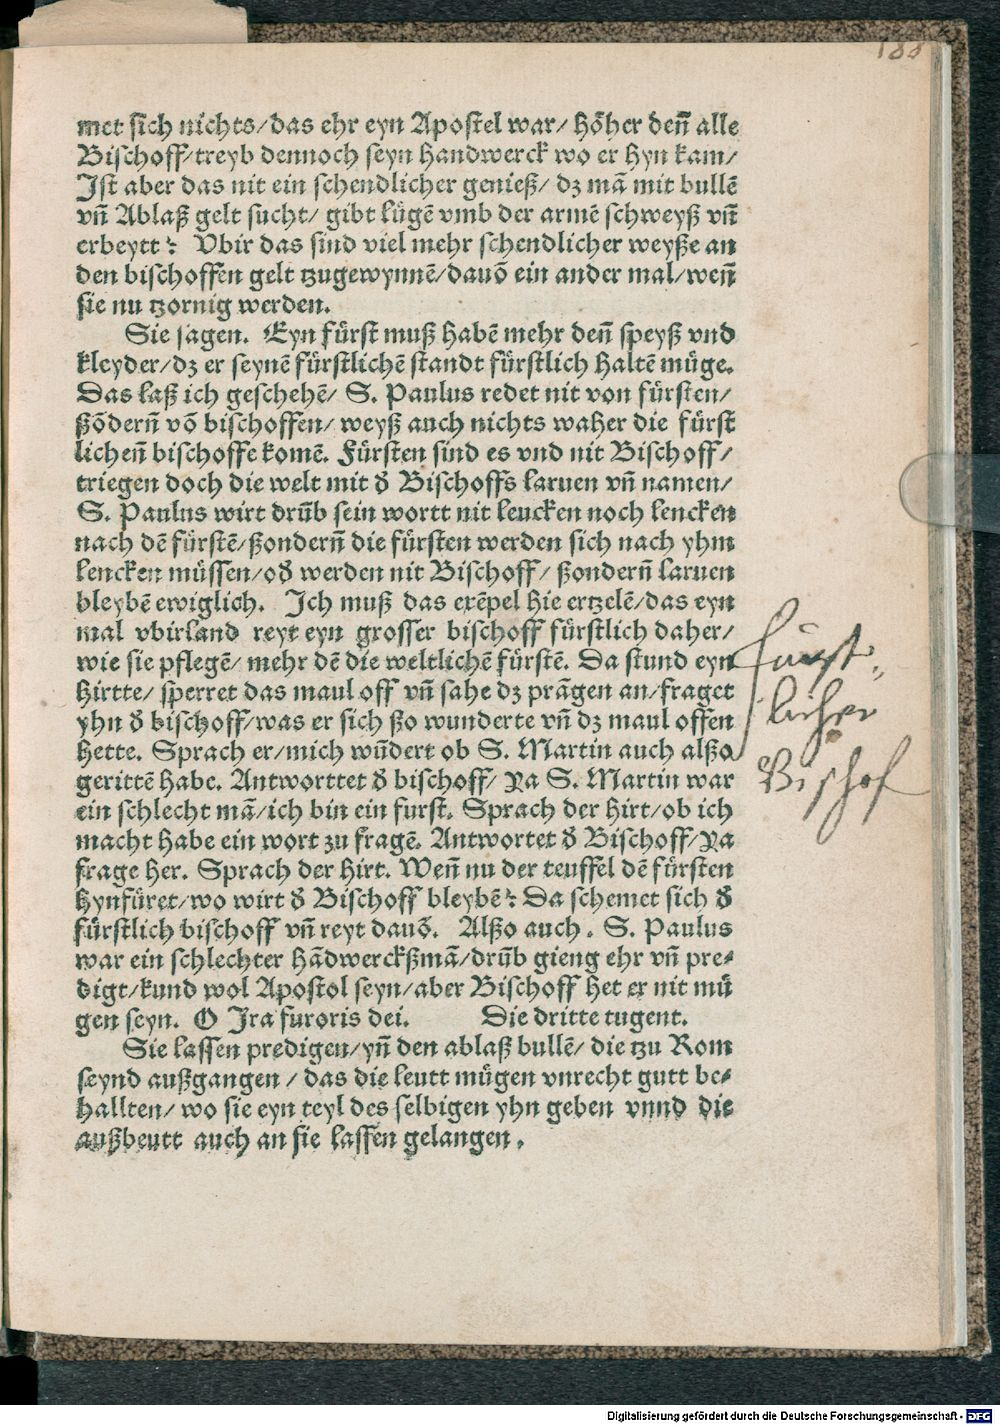 188
met sich nichts/das ehr eyn Apostel war/ hőher den̄ alle
Bischoff/treyb dennoch seyn handwerck wo er hyn kam/
Ist aber das nit ein schendlicher genieß/ dz mā mit bullē
vn̄ Ablaß gelt sucht/ gibt lügē vmb der armē schweyß vn̄
erbeytt? Vbir das sind viel mehr schendlicher weyße an
den bischoffen gelt tzugewynnē/dauō ein ander mal/wen̄
sie nu tzornig werden.
Sie sagen. Eyn fürst muß habē mehr den̄ speyß vnd
kleyder/dz er seynē fürstlichē standt fürstlich haltē müge.
Das laß ich geschehē/ S. Paulus redet nit von fürsten/
ßōdern̄ vō bischoffen/ weyß auch nichts waher die fürst
lichen̄ bischoffe komē. Fürsten sind es vnd nit Bischoff/
triegen doch die welt mit ď Bischoffs laruen vn̄ namen/
S. Paulus wirt drūb sein wortt nit leucken noch lencken
nach dē fürstē/ßondern̄ die fürsten werden sich nach yhm
lencken müssen/oď werden nit Bischoff/ ßondern̄ laruen
bleybē ewiglich. Ich muß das exēpel hie ertzelē/das eyn
mal vbirland reyt eyn grosser bischoff fürstlich daher/
wie sie pflegē/ mehr dē die weltlichē fürstē. Da stund eyn
hirtte/ sperret das maul off vn̄ sahe dz prāgen an/fraget
yhn ď bischoff/was er sich ßo wunderte vn̄ dz maul offen
hette. Sprach er/mich wūdert ob S. Martin auch alßo
gerittē habe. Antworttet ď bischoff/ Ya S. Martin war
ein schlecht mā/ich bin ein furst. Sprach der hirt/ob ich
macht habe ein wort zu fragē. Antwortet ď Bischoff/Ya
frage her. Sprach der hirt. Wen̄ nu der teuffel dē fürsten
hynfüret/wo wirt ď Bischoff bleybē? Da schemet sich ď
fürstlich bischoff vn̄ reyt dauō. Alßo auch. S. Paulus
war ein schlechter hādwerckßmā/drūb gieng ehr vn̄ pre⸗
digt/kund wol Apostol seyn/aber Bischoff het er nit mü
gen seyn. O Ira furoris dei. Die dritte tugent.
Sie lassen predigen/yn̄ den ablaß bullē/ die tzu Rom
seynd außgangen/ das die leutt mügen vnrecht gutt be⸗
hallten/ wo sie eyn teyl des selbigen yhn geben vnnd die
außbeutt auch an sie lassen gelangen.
Fürst⸗
licher
Bischof
Digitalisierung gefördert durch die Deutsche Forschungsgemeinschaft - DFG